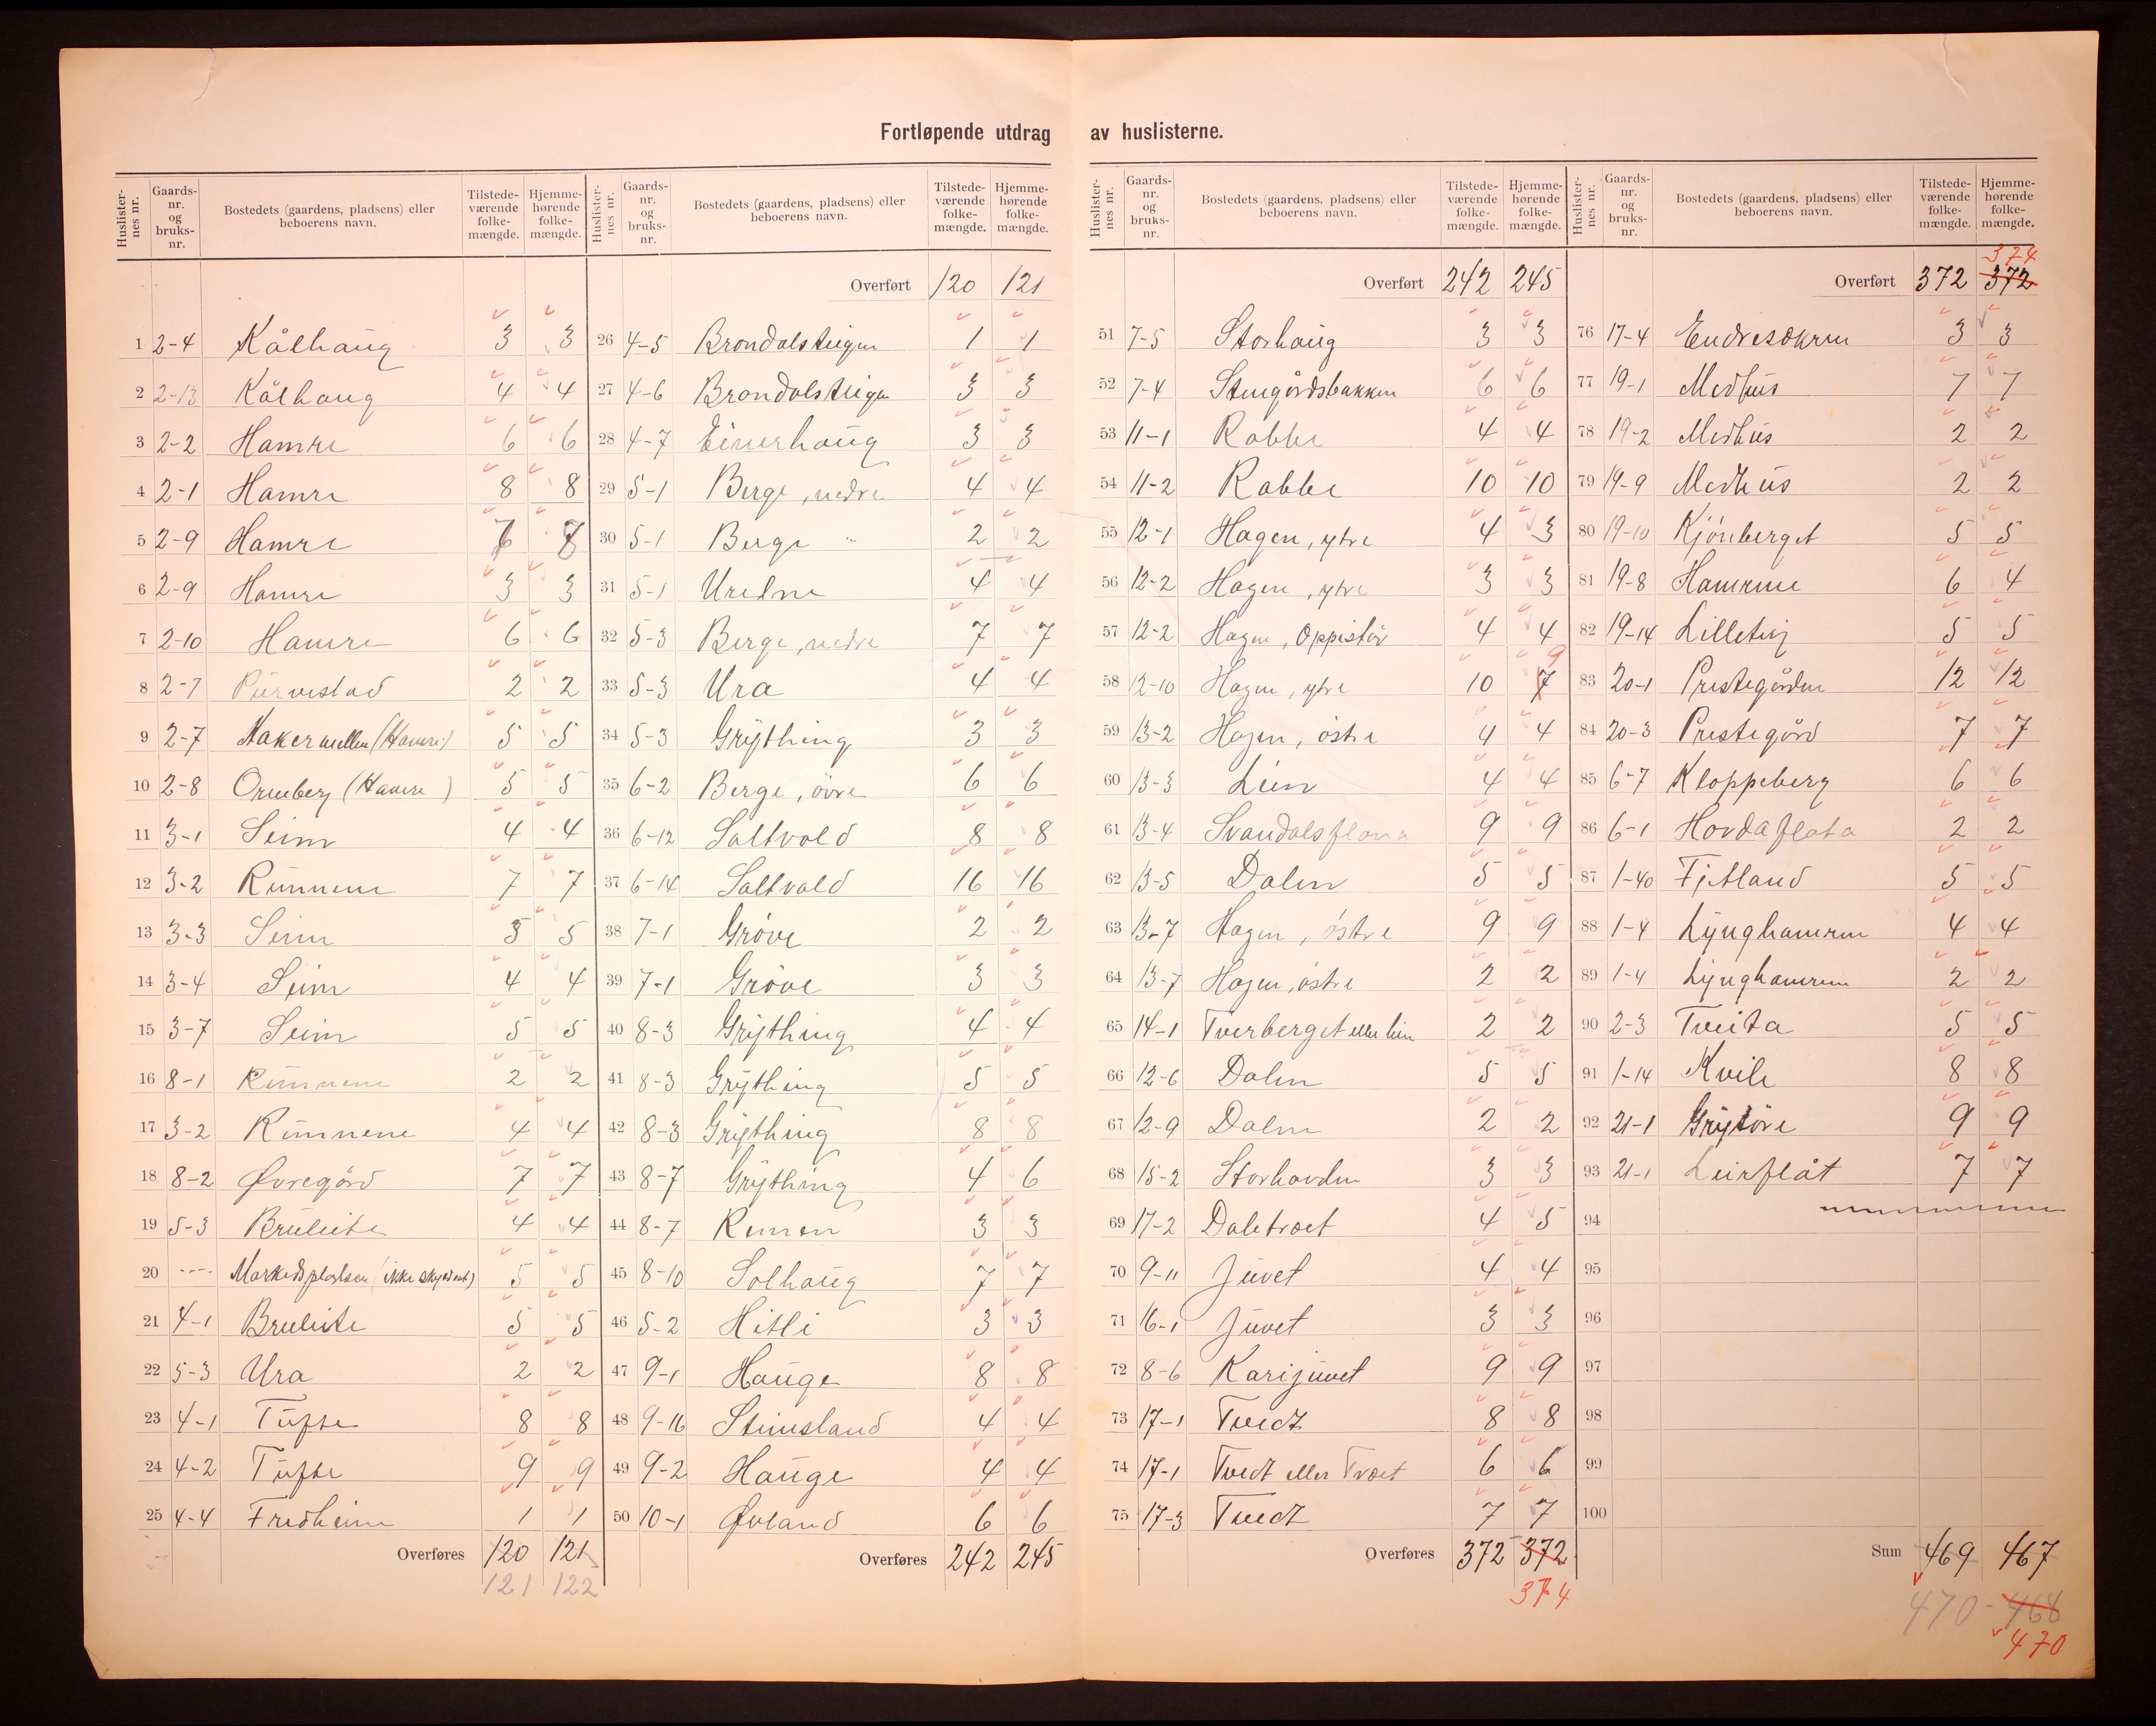 Fortløpende utdrag av huslisterne.
Huslister-nes nr. | Gaards-nr. og bruks-nr. | Bostedets (gaardens, pladsens) eller beboerens navn. | Tilstede-værende folke-mængde. | Hjemme-hørende folke-mængde.
1 2-4 Kålhaug 3 3
2 2-13 Kålhaug 4 4
3 2-2 Hamre 6 6
4 2-1 Hamre 8 8
5 2-9 Hamre
6 2-9 Hamre 3 3
7 2-10 Hamre 6 6
8 2-7 2 2
9 2-7 (Hamre) 5 5
10 2-8 Ormberg (Hamre) 5 5
11 3-1 Seim 4 4
12 3-2 Rünnene 7 7
13 3-3 Seim 5
14 3-4 Seim 4 4
15 3-7 Seim 5 5
16 8-1 Rünnene 2 2
17 3-2 Rünnene 4 4
18 8-2 Øvregård 7 7
19 5-3 Brüleite 4 4
20 ---- Markedsplassen (ikke skyldsat) 5 5
21 4-1 Bruleite 5 5
22 5-3 Ura 2 2
23 4-1 Tüfte 8 8
24 4-2 Tüfte 9 9
25 4-4 Fredheim 1 1
Overføres 120 121
121 122
Huslister-nes nr. | Gaards-nr. og bruks-nr. | Bostedets (gaardens, pladsens) eller beboerens navn. | Tilstede-værende folke-mængde. | Hjemme-hørende folke-mængde.
Overført 120 121
26 4-5 Brondalsteigen 1 1
27 4-6 Brondalsteigen 3 3
28 4-7 Einerhaug 3 3
29 5-1 Berge, nedre 4 4
30 5-1 Berge " 2 2
31 5-1 Uredne 4 4
32 5-3 Berge, nedre 7 7
33 5-3 Ura 4 4
34 5-3 Grÿthing 3 3
35 6-2 Berge, övre 6 6
36 6-12 Saltvold 8 8
37 6-14 Saltvold 16 16
38 7-1 Gröve 2 2
39 7-1 Gröve 3 3
40 8-3 Grÿthing 4 4
41 8-3 Grÿthing 5 5
42 8-3 Grÿthing 8 8
43 8-7 Grÿthing 4 6
44 8-7 3 3
45 8-10 Solhaug 7 7
46 5-2 Hitli 3 3
47 9-1 Hauge 8 8
48 9-16 Steinsland 4 4
49 9-2 Hauge 4 4
50 10-1 Øvland 6 6
Overføres 242 245
Huslister-nes nr. | Gaards-nr. og bruks-nr. | Bostedets (gaardens, pladsens) eller beboerens navn. | Tilstede-værende folke-mængde. | Hjemme-hørende folke-mængde.
Overført 242 245
51 7-5 Storhaug 3 3
52 7-4 Stengårdsbakken 6 6
53 11-1 Rabbe 4 4
54 11-2 Rabbe 10 10
55 12-1 Hagen, ytre 4 3
56 12-2 Hagen, ytre 3 3
57 12-2 Hagen, Oppistöv 4 4
58 12-10 Hagen, ytre 10 7 9
59 13-2 Hagen, östre 4 4
60 13-3 Lien 4 4
61 13-4 Svandalsflona 9 9
62 13-5 Dalen 5 5
63 13-7 Hagen, östre 9 9
64 13-7 Hagen, östre 2 2
65 14-1 Tverberget eller Lien 2 2
66 12-6 Dalen 5 5
67 12-9 Dalen 2 2
68 15-2 Storhovden 3 3
69 17-2 Daletræet 4 5
70 9-11 Juvet 4 4
71 16-1 Juvet 3 3
72 8-6 Karijuvet 9 9
73 17-1 Tvedt 8 8
74 17-1 Tvedt eller Træet 6 6
75 17-3 Tvedt 7 7
Overføres 372 372
374
Huslister-nes nr. | Gaards-nr. og bruks-nr. | Bostedets (gaardens, pladsens) eller beboerens navn. | Tilstede-værende folke-mængde. | Hjemme-hørende folke-mængde.
374
Overført 372 372
76 17-4 Endresökren 3 3
77 19-1 Medhus 7 7
78 19-2 Medhus 2 2
79 19-9 Medhus 2 2
80 19-10 Kjönberget 5 5
81 19-8 Hammene 6 4
82 19-14 Lilleteig 5 5
83 20-1 Prestegården 12 12
84 20-3 Prestegård 7 7
85 6-7 Kloppeberg 6 6
86 6-1 Hovdaflata 2 2
87 1-40 Fjetland 5 5
88 1-4 Lÿnghammen 4 4
89 1-4 Lÿnghammen 2 2
90 2-3 Tveita 5 5
91 1-14 Kvile 8 8
92 21-1 Grÿtöre 9 9
93 21-1 Leirflåt 7 7
94
95
96
97
98
99
100
Sum 469 467
470 - 468
470